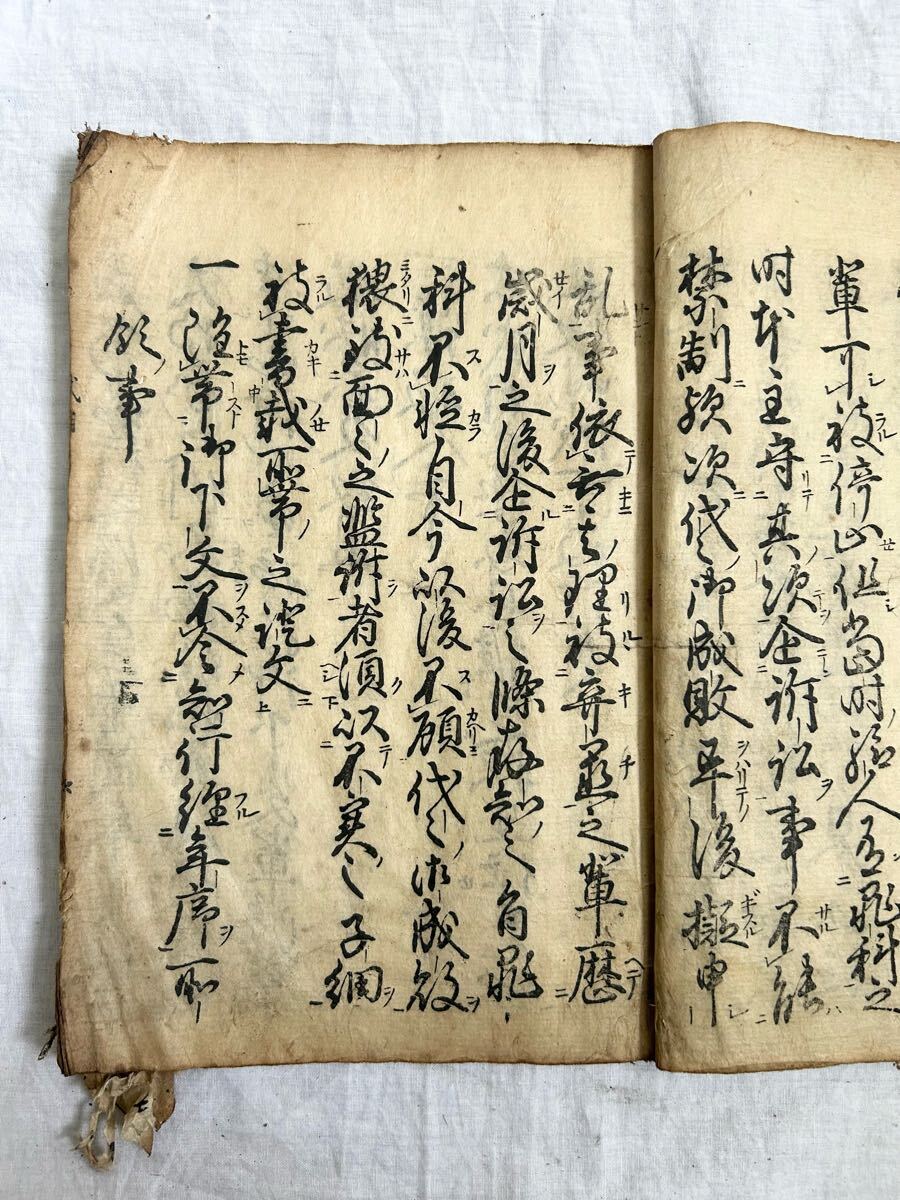 輩可被停止但當時給人有罪科之
時本主守其次企訴訟事不能
禁制歟次代々御成敗畢後擬申
乱事依無其理被弃置之輩歴
歳月之後企訴訟之條存知之旨罪
科不軽自今以後不顧代々御成敗
猥致面々之濫訴者須以不実之子細
被書載所帯之證文
一雖帯御下文不令知行経年序所
領事